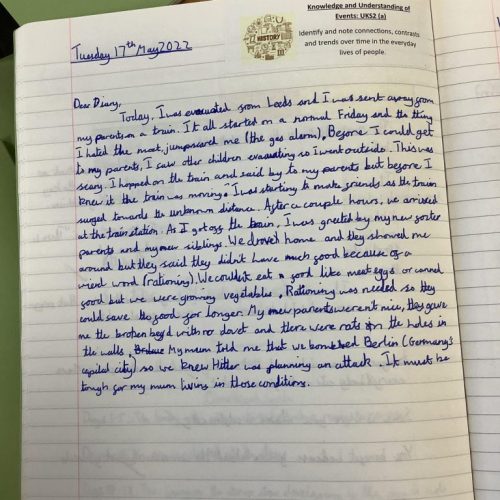 Knowledge and Understanding of
Events: UKS2 (a)
Identify and note connections, contrasts
and trends over time in the everyday
lives of people.
HISTORY
Tuesday 17th May 2022
Dear Diary,
Today, I was evacuated from Leeds and I was sent away from
my parents on a train. It all started on a normal Friday and the thing
I hated the most, jumpscared me (the gas alarm), Before I could get
to my parents, I saw other children evacuating so I went outside. This was
scary. I hopped on the train and said by to my parents but before I
knew it the train was moving. I was starting to make friends as the train
surged towards the unknown distance. After a couple hours, we arrived
at the train station. As I got off the train, I was greeted by my new foster
parents and my new siblings. We drove home and they showed me
around but they said they didn't have much food because of a
wierd word (rationing). We couldn't eat food like meat eggs or canned
food but we were growing vegetables. Rationing was needed so they
could save the food for longer. My new parents weren't nice, they gave
me the broken bed with no duvet and there were rats in the holes in
the walls. My mum told me that we bombed Berlin (Germany's
capital city) so we knew Hitler was planning an attack. It must be
tough for my mum living in those conditions.